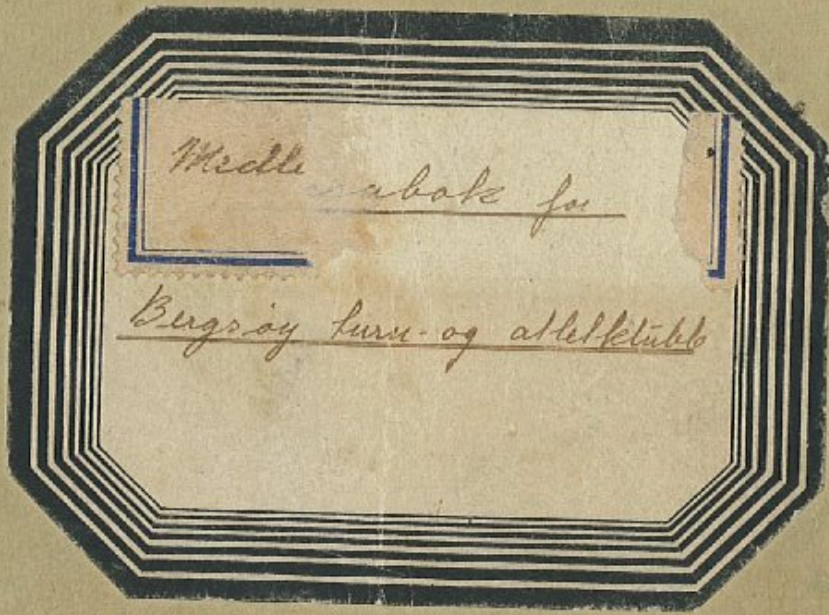 Medle abok for
Bergsøy turn- og atletklubb